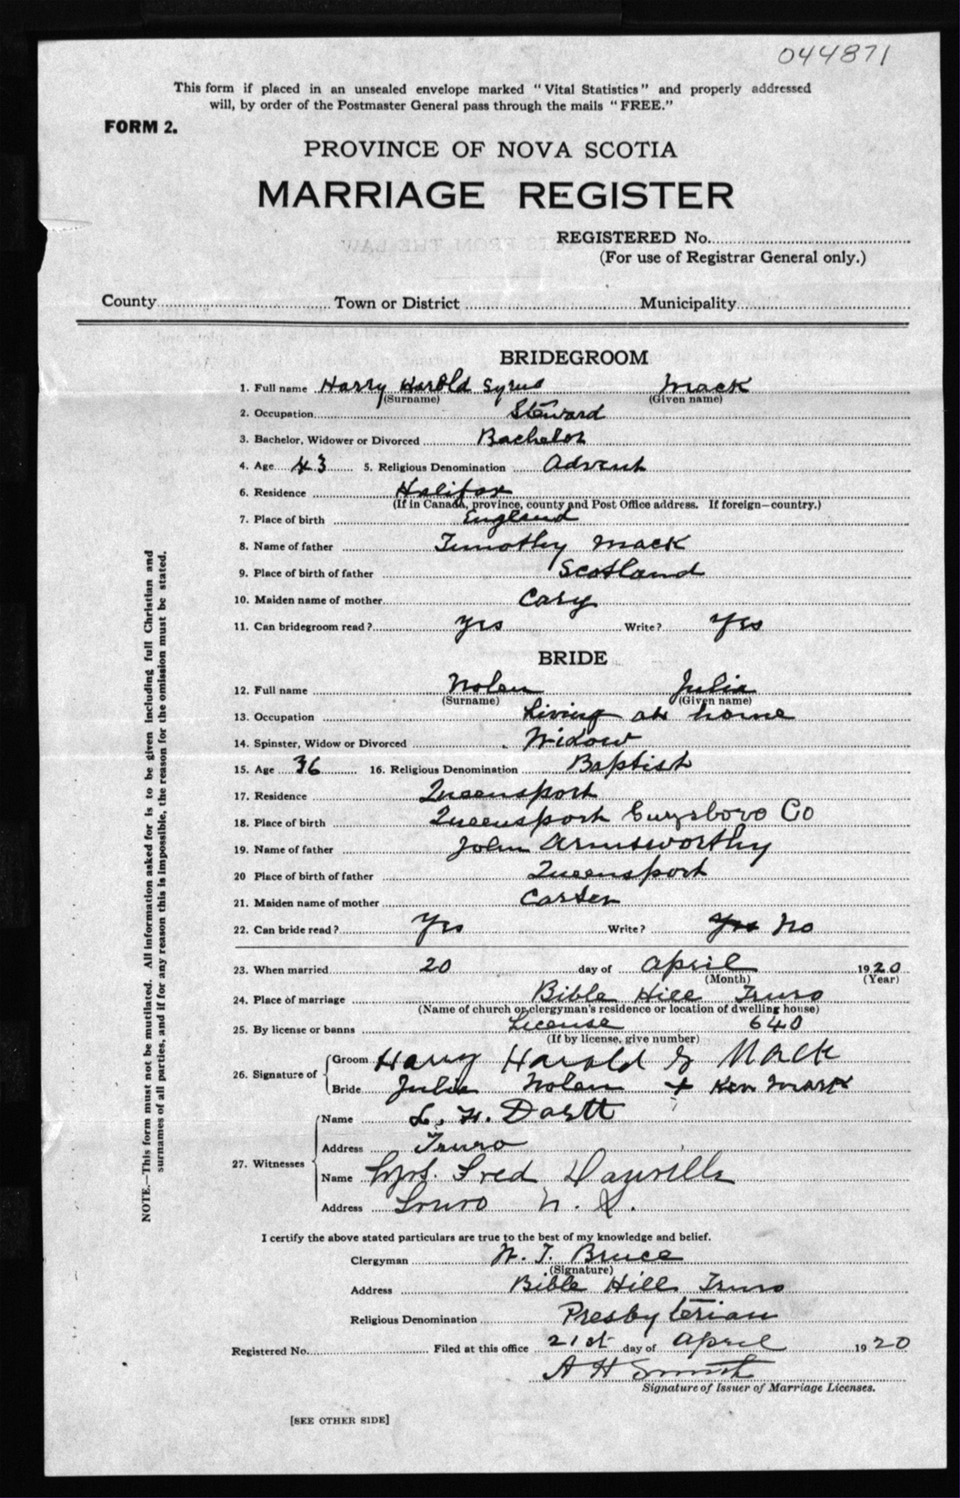 044871
This form if placed in an unsealed envelope marked "Vital Statistics" and properly addressed
will, by order of the Postmaster General pass through the mails "FREE."
FORM 2.
PROVINCE OF NOVA SCOTIA
MARRIAGE REGISTER
REGISTERED No.
(For use of Registrar General only.)
County Town or District Municipality
BRIDEGROOM
1. Full name Harry Harold Syrus Mack
(Surname) (Given name)
2. Occupation Steward
3. Bachelor, Widower or Divorced Bachelor
4. Age 43 5. Religious Denomination Advent
6. Residence Halifax
(If in Canada, province, county and Post Office address. If foreign—country.)
7. Place of birth England
8. Name of father Timothy Mack
9. Place of birth of father Scotland
10. Maiden name of mother Cary
11. Can bridegroom read? Yes Write? Yes
BRIDE
12. Full name Nolen Julia
(Surname) (Given name)
13. Occupation Living at home
14. Spinster, Widow or Divorced Widow
15. Age 36 16. Religious Denomination Baptist
17. Residence Queensport
18. Place of birth Queensport Guysboro Co
19. Name of father John Armsworthy
20 Place of birth of father Queensport
21. Maiden name of mother Carter
22. Can bride read? Yes Write? Yes No
23. When married 20 day of April 1920
(Month) (Year)
24. Place of marriage Bible Hill Truro
(Name of church or clergyman's residence or location of dwelling house)
25. By license or banns License 640
(If by license, give number)
26. Signature of Groom Harry Harold S Mack
Bride Julia Nolen + her mark
27. Witnesses Name L. H. Dartt
Address Truro
Name Mrs. Fred
Address Truro N. S.
I certify the above stated particulars are true to the best of my knowledge and belief.
Clergyman W. T. Bruce
(Signature)
Address Bible Hill Truro
Religious Denomination Presbyterian
Registered No. Filed at this office 21st day of April 1920
A H Smith
Signature of Issuer of Marriage Licenses.
[SEE OTHER SIDE]
NOTE.—This form must not be mutilated. All information asked for is to be given including full Christian and
surnames of all parties, and if for any reason this is impossible, the reason for the omission must be stated.